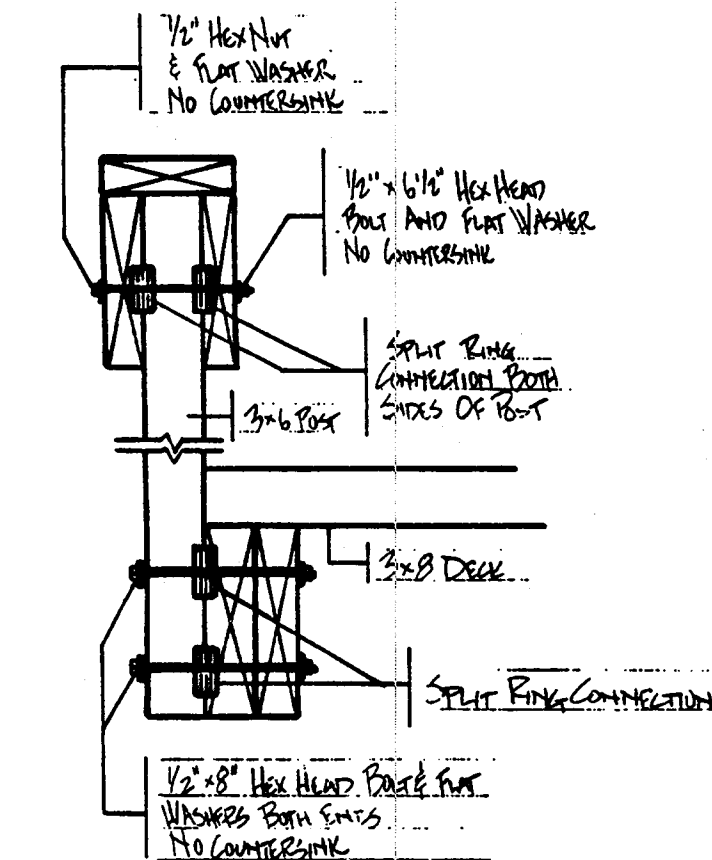 1/2" HEX NUT
& FLAT WASHER
NO COUNTERSINK
1/2" x 6 1/2" HEX HEAD
BOLT AND FLAT WASHER
NO COUNTERSINK
SPLIT RING
CONNECTION BOTH
SIDES OF POST
3x6 POST
3x8 DECK
SPLIT RING CONNECTION
1/2" x 8" HEX HEAD BOLT & FLAT
WASHERS BOTH ENDS
NO COUNTERSINK